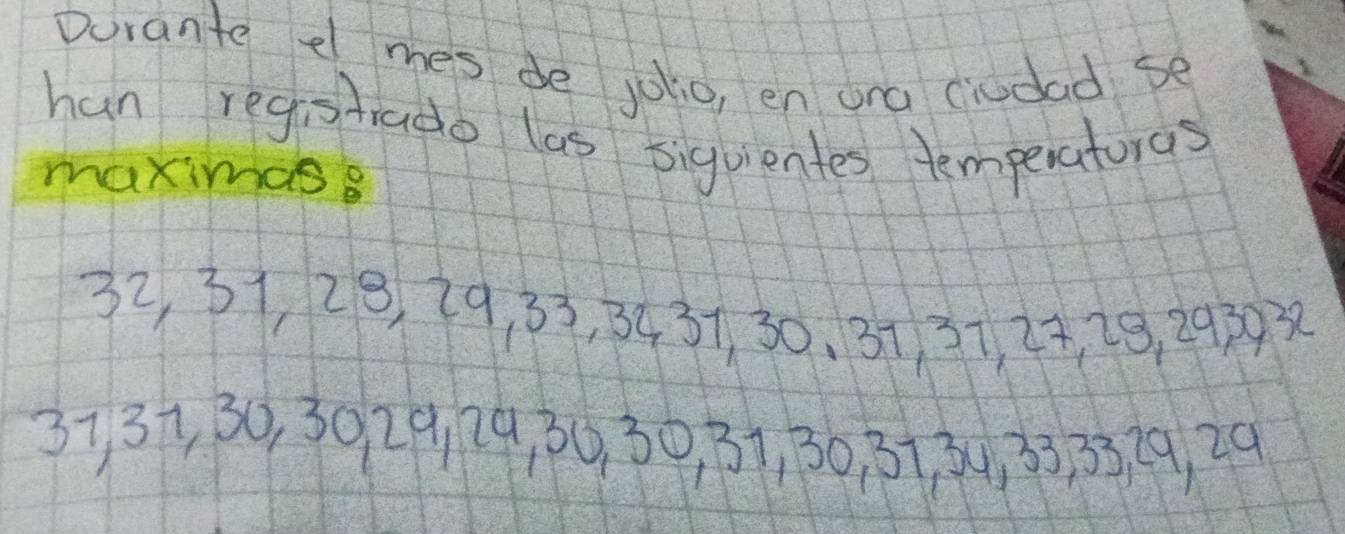 Durante el mes de julio, en una ciudad se
han registrado las siguientes temperaturas
maximas:
32, 31, 28, 29, 33, 32, 31, 30, 31, 31, 27, 28, 29, 30, 32
31, 31, 30, 30, 29, 29, 30, 30, 31, 30, 31, 34, 33, 33, 29, 29